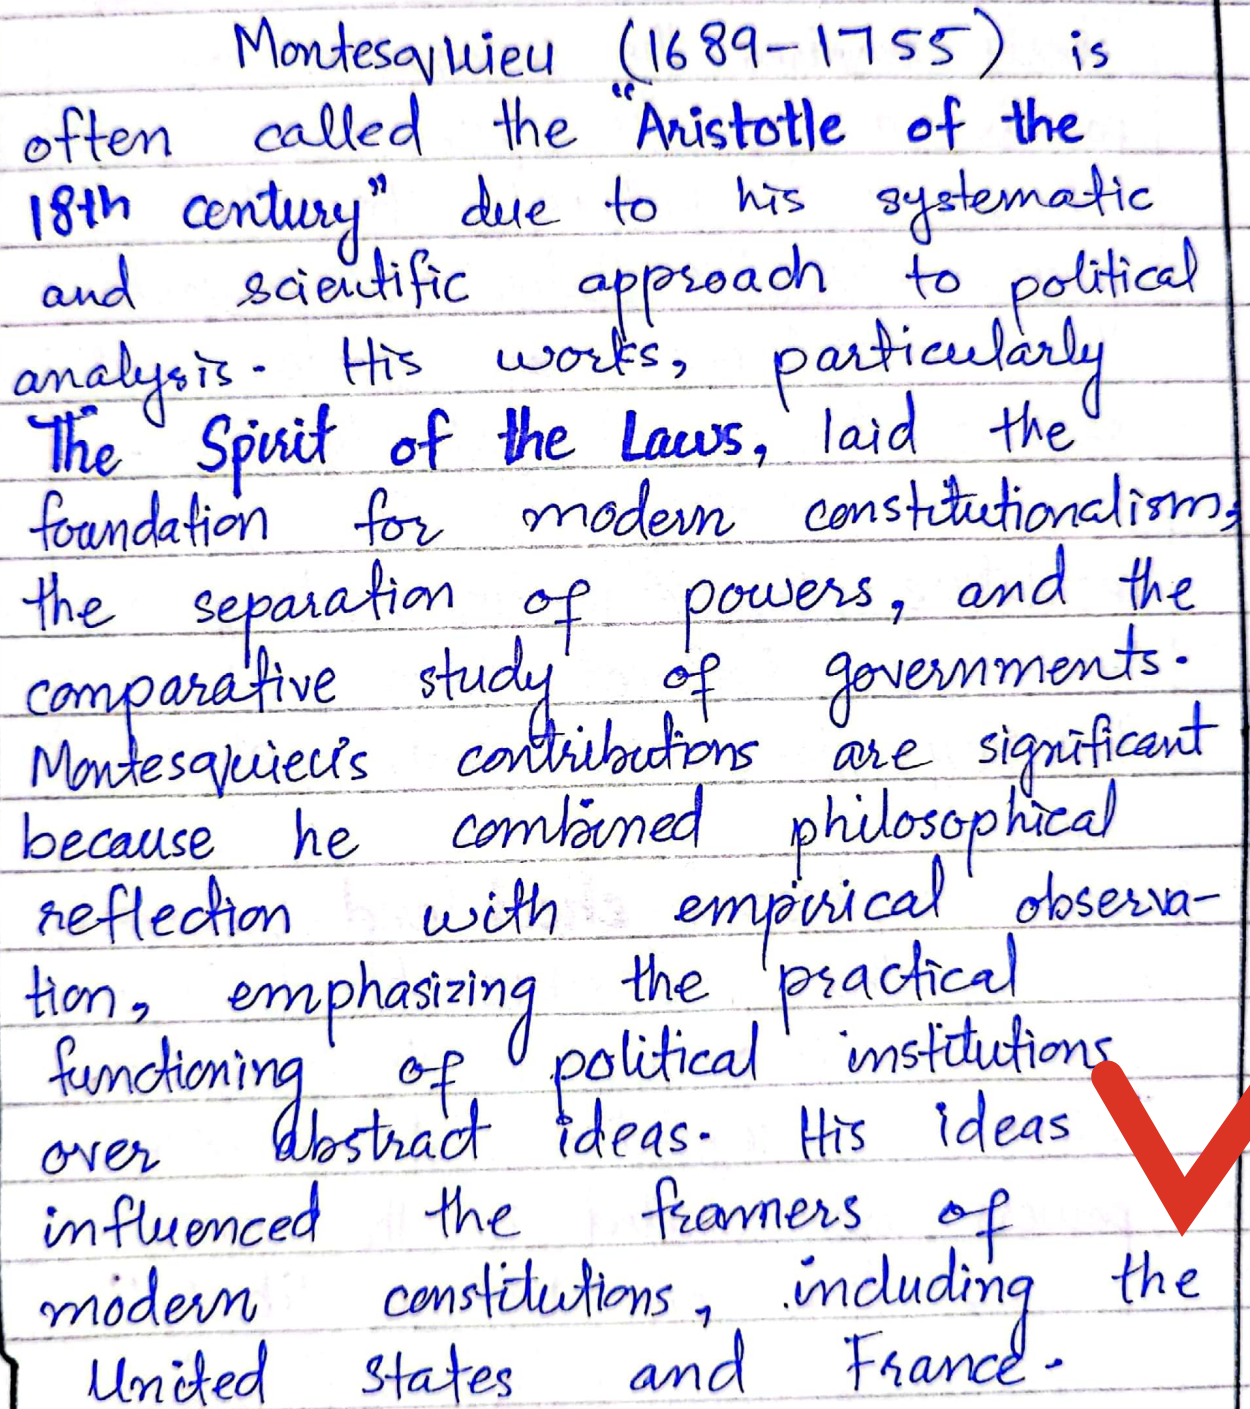 Montesquieu (1689-1755) is
often called the "Aristotle of the
18th century" due to his systematic
and scientific approach to political
analysis. His works, particularly
The Spirit of the Laws, laid the
foundation for modern constitutionalism,
the separation of powers, and the
comparative study of governments.
Montesquieu's contributions are significant
because he combined philosophical
reflection with empirical observa-
tion, emphasizing the practical
functioning of political institutions
over abstract ideas. His ideas
influenced the framers of
modern constitutions, including the
United States and France.